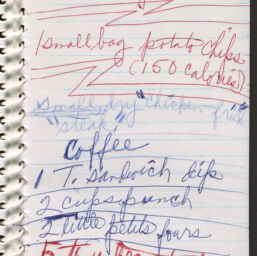 1 small bag potato chips
(150 calories)
small dry "chicken-fried
"steak"
Coffee
1 T. sandwich dip
2 cups punch
2 little petits fours